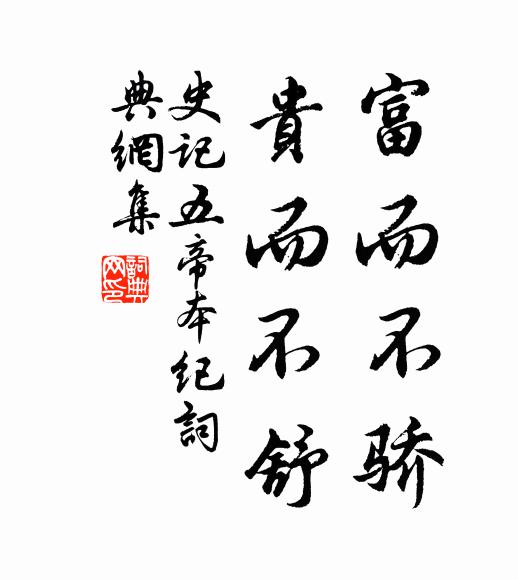 富而不骄
貴而不舒
史记五帝本纪詞
典網集
詞典
网印